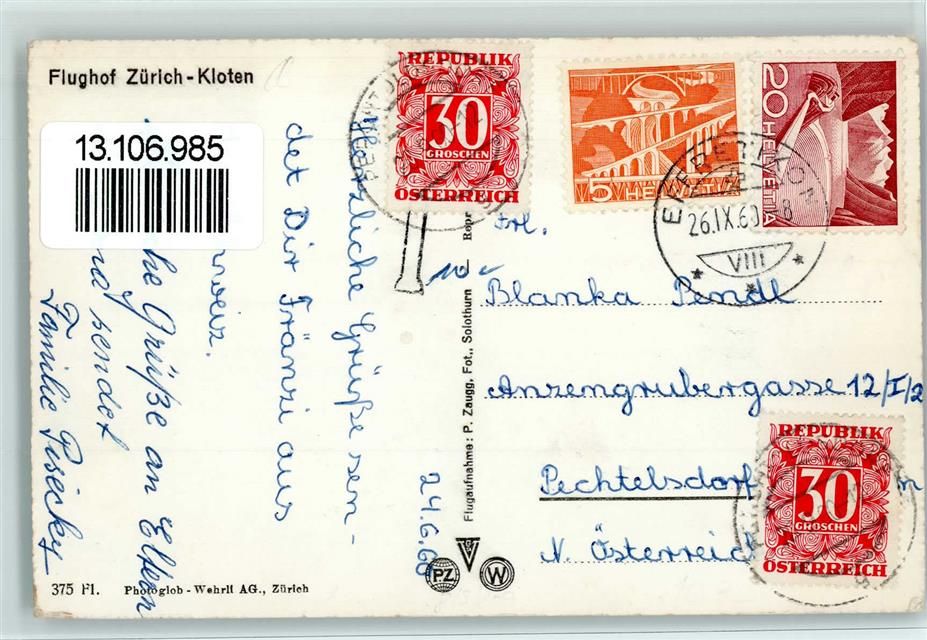 Flughof Zürich-Kloten
13.106.985
Herzliche Grüße sen-
det Dir Fränzi aus
weiz.
he Grüße an Eltern
sendet
Familie Pisecky
24.6.60
375 Fl. Photoglob-Wehrli AG., Zürich
Flugaufnahme: P. Zaugg, Fot., Solothurn Repr
PZ
W
REPUBLIK
30
GROSCHEN
ÖSTERREICH
5 HELVETIA
20 HELVETIA
26.IX.60
8
VIII
T
Frl.
Blanka Pendl
Anzengrubergasse 12/I/2
Pechtelsdorf
N. Österreich
REPUBLIK
30
GROSCHEN
ÖSTERREICH